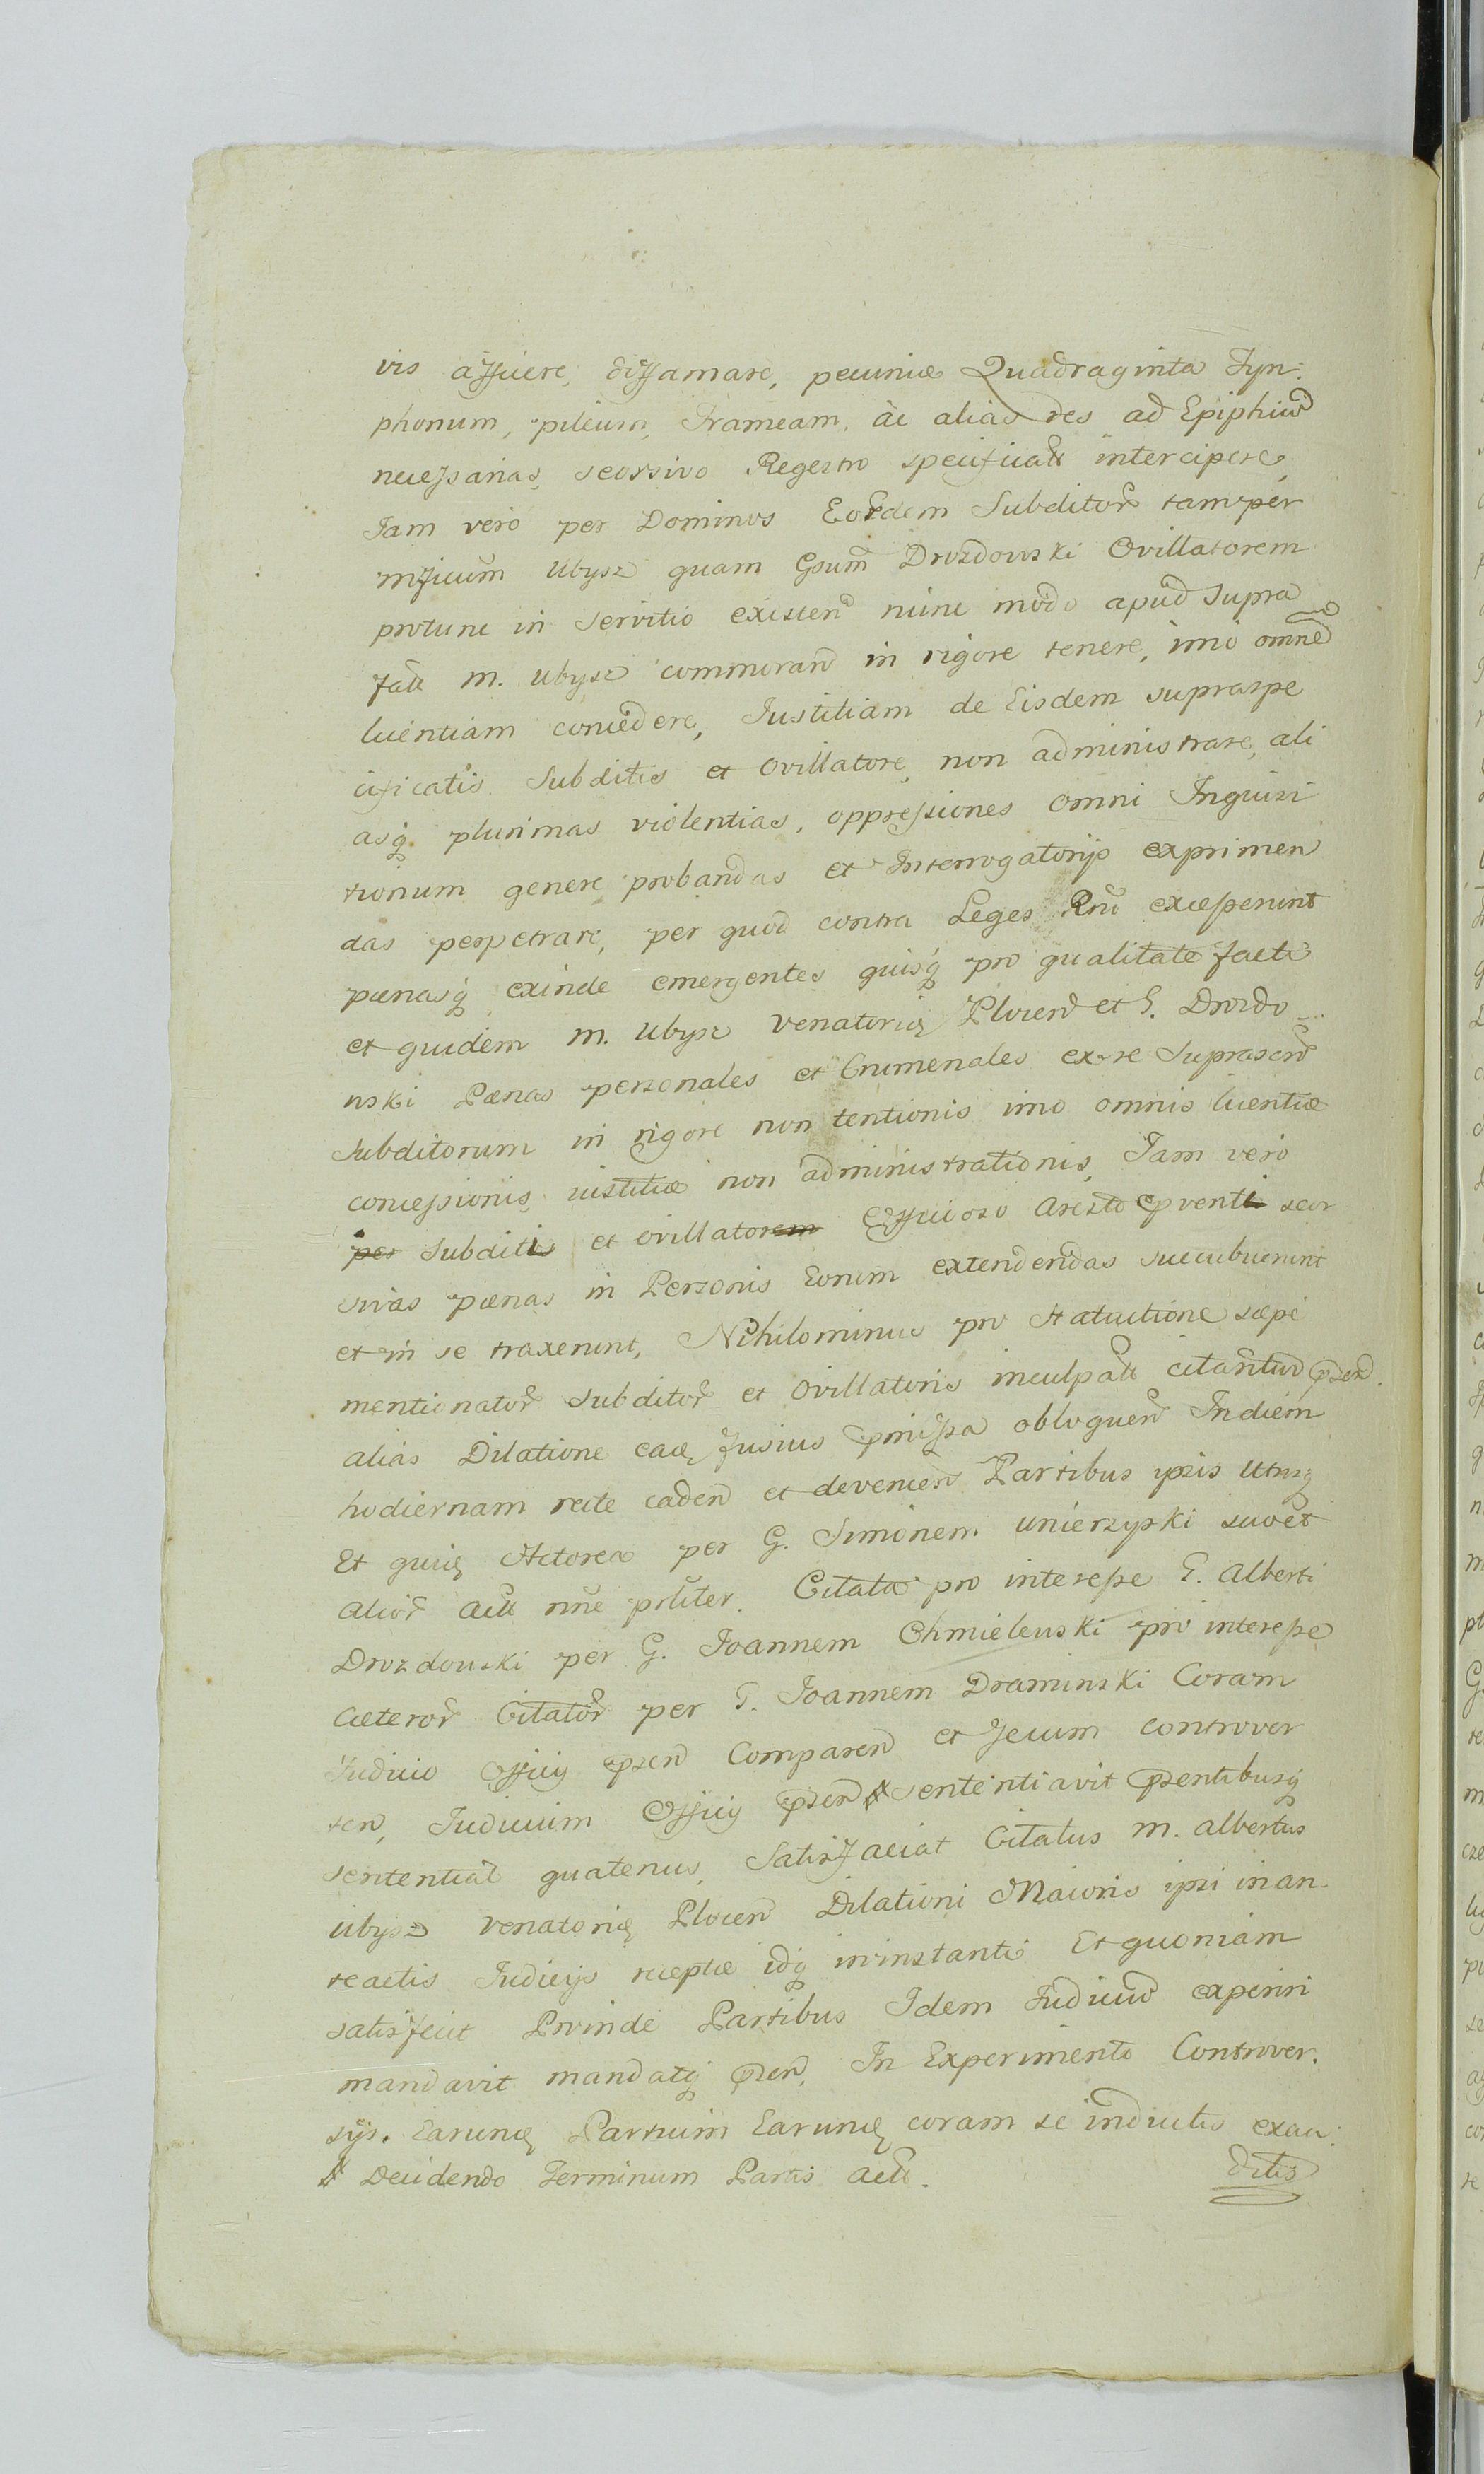 vis afficere, diffamare, pecuniæ Quadraginta Tyn:
phonum, pileum, Frameam, ac alias res ad Epiphiũ
necessarias, seorsivo Regestro specificatt intercipere,
Jam vero per Dominos Eordem Subditor tam per
mficum Ubysz quam Gsum Drozdowski Ovillatorem
protunc in servitio existen nunc modo apud supra
fatt M. Ubysz commoran in rigore tenere, imo omnẽ
licentiam concedere, Justitiam de Eisdem supraspe
cificatis Subditis et Ovillatore, non administrare, ali
asq plurimas violentias, oppressiones omni Inquisi
tionum genere probandas et Interrogatorijs exprimen
das perpetrare, per quod contra Leges Rni excesserunt
pœnasq exinde emergentes quisq pro qualitate facti
et quidem M. Ubysz Venatorię Plocen et G. Drozdo-
wski Pœnas personales et Crumenales ex re suprascr
Subditorum in rigore non tentionis imo omnis licentiæ
concessionis, iustitiæ non administrationis, Jam vero
per Subditi et Ovillatorem Officioso Aresto pventi seor
sivas pœnas in Personis Eorum extendendas succubuerunt
et in se traxerunt, Nihilominus pro statuitione sæpe
mentionator Subditor et Ovillatoris inculpatt citantur pzen.
alias Dilatione eaę fusius pmissa obloquen In diem
hodiernam recte caden et devenien Partibus ipsis utrisq
Et quię Actorea per G. Simonem Unierzyski suo et
alior act nne prliter. Citata pro interesse G. Alberti
Drozdowski per G. Joannem Chmielewski pro interesse
Cæteror Citator per G. Joannem Draminski Coram
Judicio Officij pzen Comparen et secum controver
ten, Judicium Officij pzen sententiavit pzentibusq
sententiat quatenus, Satisfaciat Citatus M. Albertus
Ubysz Venatorię Plocen Dilationi Maioris ipsi in an
teactis Judicijs receptæ idq in instanti Et quoniam
satisfecit Proinde Partibus Idem Judiciũ experiri
mandavit mandatq pzen, In Experimento Controver.
sijs. Earunę Partium Earunę coram se inductis exau:
Decidendo Terminum Partis act.
ditis